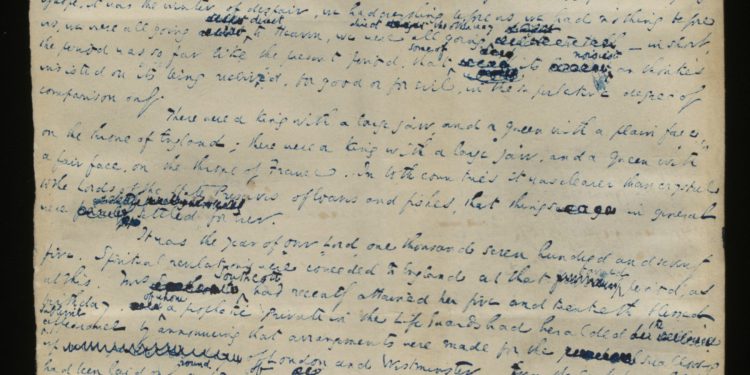 hope, it was the winter of despair, we had everything before us, we had nothing before
us, we were all going direct to Heaven, we were all going direct — in short
the period was so far like the present period, that some of its noisiest authorities
insisted on its being received, for good or for evil, in the superlative degree of
comparison only.
There were a King with a large jaw, and a queen with a plain face
on the throne of England; there were a King with a large jaw, and a queen with
a fair face, on the throne of France. In both countries it was clearer than crystal
to the Lords of the State Preserves of loaves and fishes, that things in general
were settled for ever.
It was the year of Our Lord one thousand seven hundred and seventy
five. Spiritual revelations were conceded to England at that favoured period, as
at this. Mrs Southcott had recently attained her five and twentieth blessed
birthday of whom a prophetic private in the Life Guards had heralded the
sublime appearance by announcing that arrangements were made for the swallowing
up of London and Westminster.
had been laid only round